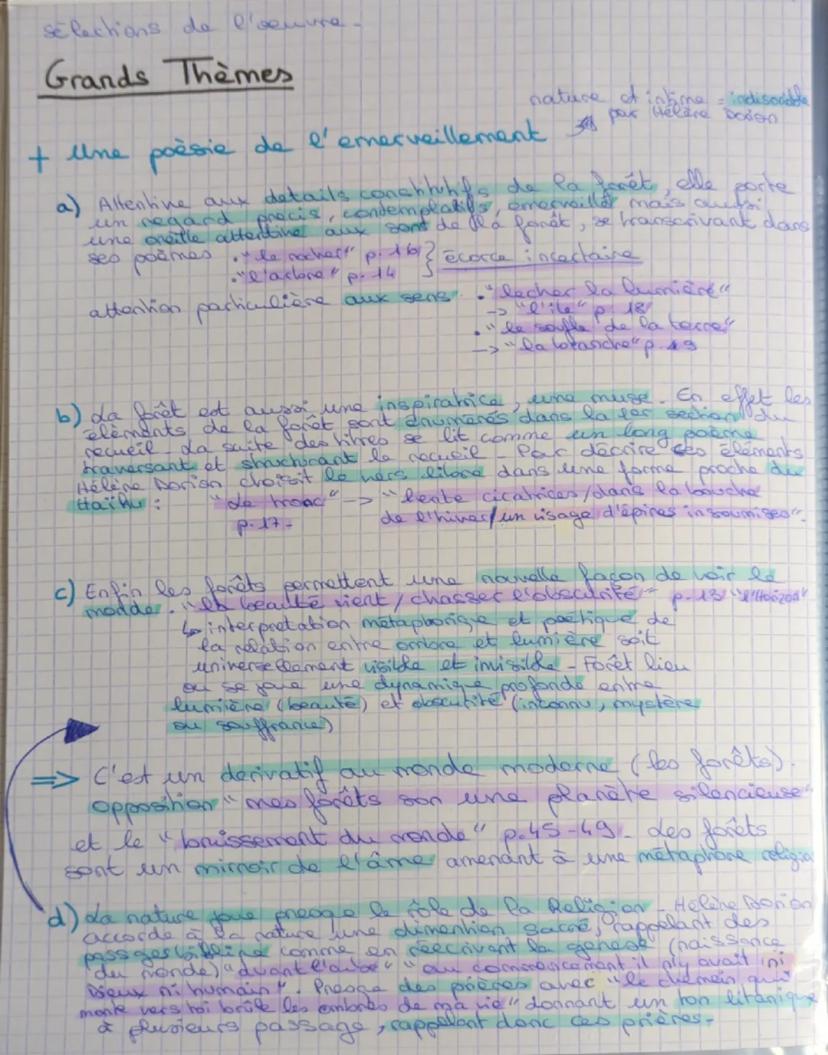 sélections de l'oeuvre.
Grands Thèmes
nature et intime = indisociable
par Hélène Dorion
+ Une poèsie de l'emerveillement
a) Attentive aux details constitutifs de la forêt, elle porte
un regard précis, contemplatifs, émerveillée mais aussi
une oreille attentive aux sont de la forêt, se transcrivant dans
ses poèmes . "le rocher" p. 16 } Écorce incertaine
. "l'arbre" p. 14
attention particulière aux sens . "lecher la lumière"
-> "l'île" p. 18
. "le souffle de la terre"
-> "la branche" p. 19
b) La forêt est aussi une inspiratrice, une muse. En effet les
éléments de la forêt sont énumérés dans la 1er section du
recueil. La suite des titres se lit comme un long poème
traversant et structurant le recueil. Par décrire ces éléments
Hélène Dorion choisit le vers libre dans une forme proche du
Haïku : "Le tronc" -> "lente cicatrices/dans la bouche
p. 17. de l'hiver/un visage d'épines insoumises".
c) Enfin les forêts permettent une nouvelle façon de voir le
monde. "la beauté vient / chasser l'obscurité" p. 13 "l'Horizon"
↳ interpretation métaphorique et poétique de
la rélation entre ombre et lumière soit
universellement visible et invisible - Forêt lieu
ou se joue une dynamique profonde entre
lumière (beauté) et obscutité (inconnu, mystère
ou souffrance)
=> C'est un dérivatif au monde moderne (les forêts).
opposition "mes forêts son une planète silencieuse"
et le "bruissement du monde" p. 45-49. Les forêts
sont un mirroir de l'âme amenant à une métaphore religieu
d) La nature joue presque le rôle de la Religion. Hélène Dorion
accorde à la nature une dimention sacré, rappelant des
passages bibline comme en réecrivant la génèse (naissance
du monde) "avant l'aube" "au commencement il n'y avait ni
Dieux ni humain". Presque des prières avec "le chemin qui
monte vers toi brûle les ombres de ma vie" donnant un ton litanique
à plusieurs passage, rappelant donc ces prières.